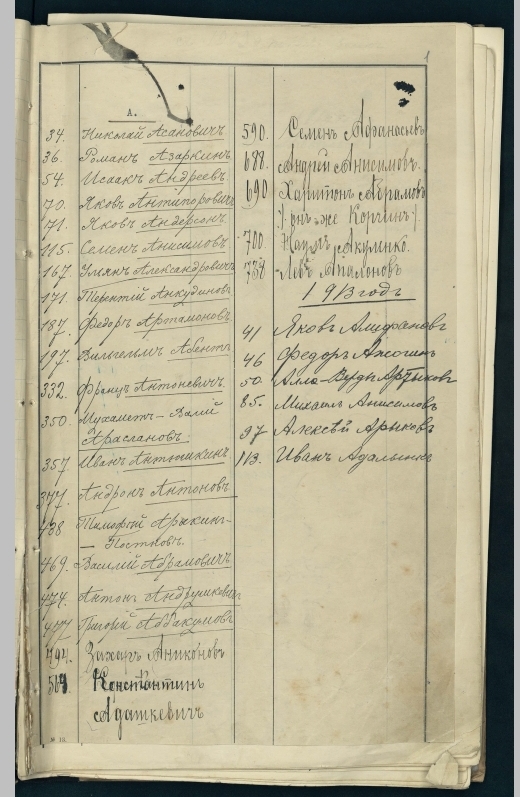 А.
34. Николай Асановичъ
36. Романъ Азаркинъ
54. Исаакъ Андреевъ
70. Яковъ Антипоровичъ
71. Яковъ Андерсонъ
115. Семенъ Анисимовъ
167. Александровичъ
171. Терентій Анкудиновъ
187. Федоръ Артамоновъ
197. Вильгельмъ Абентъ
332. Францъ Антоневичъ
350. Мухаметъ-Валій
Араслановъ.
357 Иванъ Антюшкинъ
377. Андронъ Антоновъ
438 Тимофей Арыкинъ-
— Постновъ.
469. Василій Абрамовичъ
474. Антонъ Андрушкевичъ
477 Григорій Аввакумовъ
494. Захаръ Аниконовъ
569. Константинъ
Адашкевичъ
590. Семенъ Афанасьевъ
688. Андрей Анисимовъ.
690 Харитонъ Абрамовъ
/онъ-же Коргинъ/
700. Наумъ Акуленко.
738 Левъ Апалоновъ
1913 годъ
41 Яковъ
46 Федоръ Ажогинъ
50. Арыковъ
85. Михаилъ Анисимовъ
97 Алексѣй Арыковъ
113. Иванъ
№ 10.